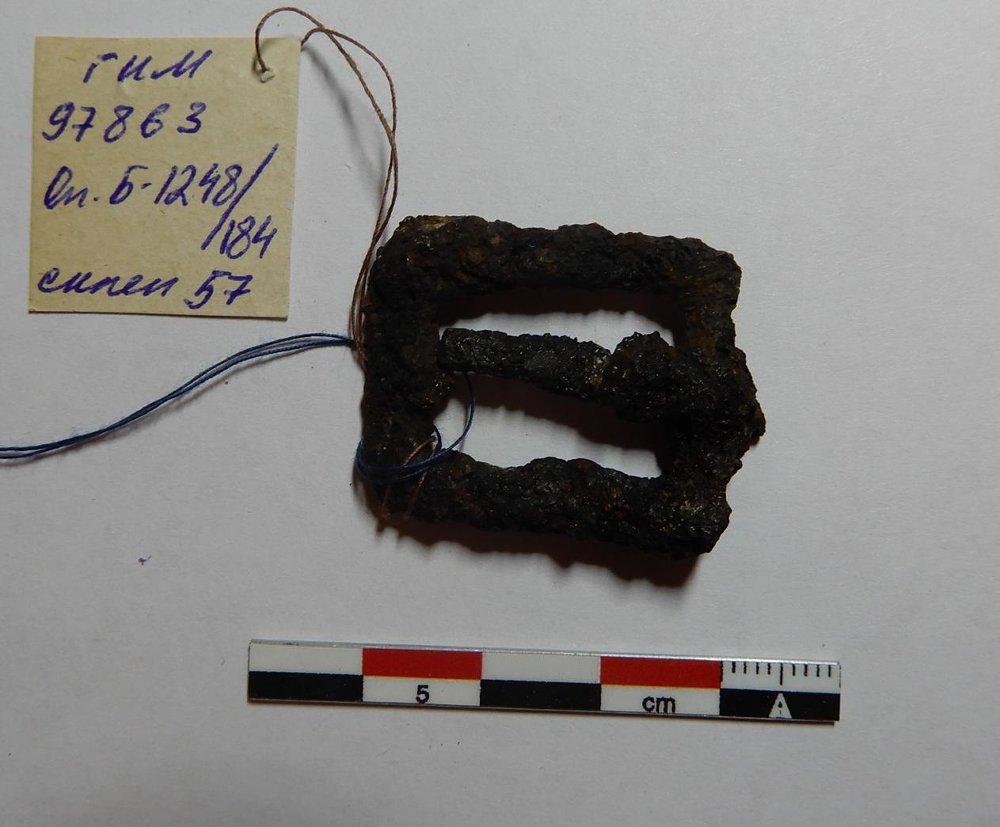 ГИМ
97863
Оп. Б-1248/
/184
скпеп 57
5 cm